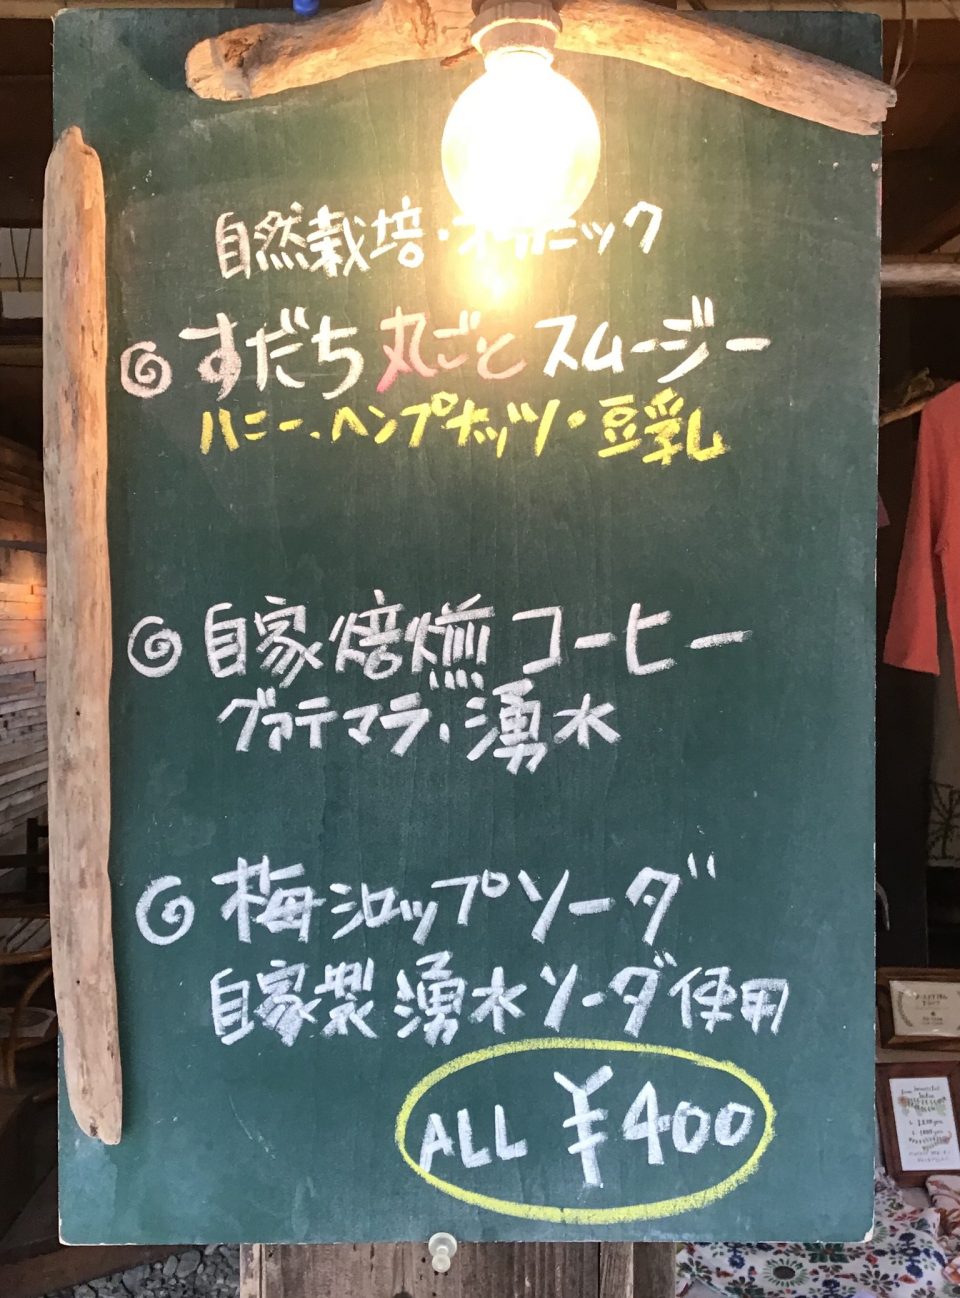 自然栽培・オーガニック
すだち丸ごとスムージー
ハニー、ヘンプナッツ・豆乳
自家焙煎コーヒー
グァテマラ、湧水
梅シロップソーダ
自家製湧水ソーダ使用
ALL ¥400